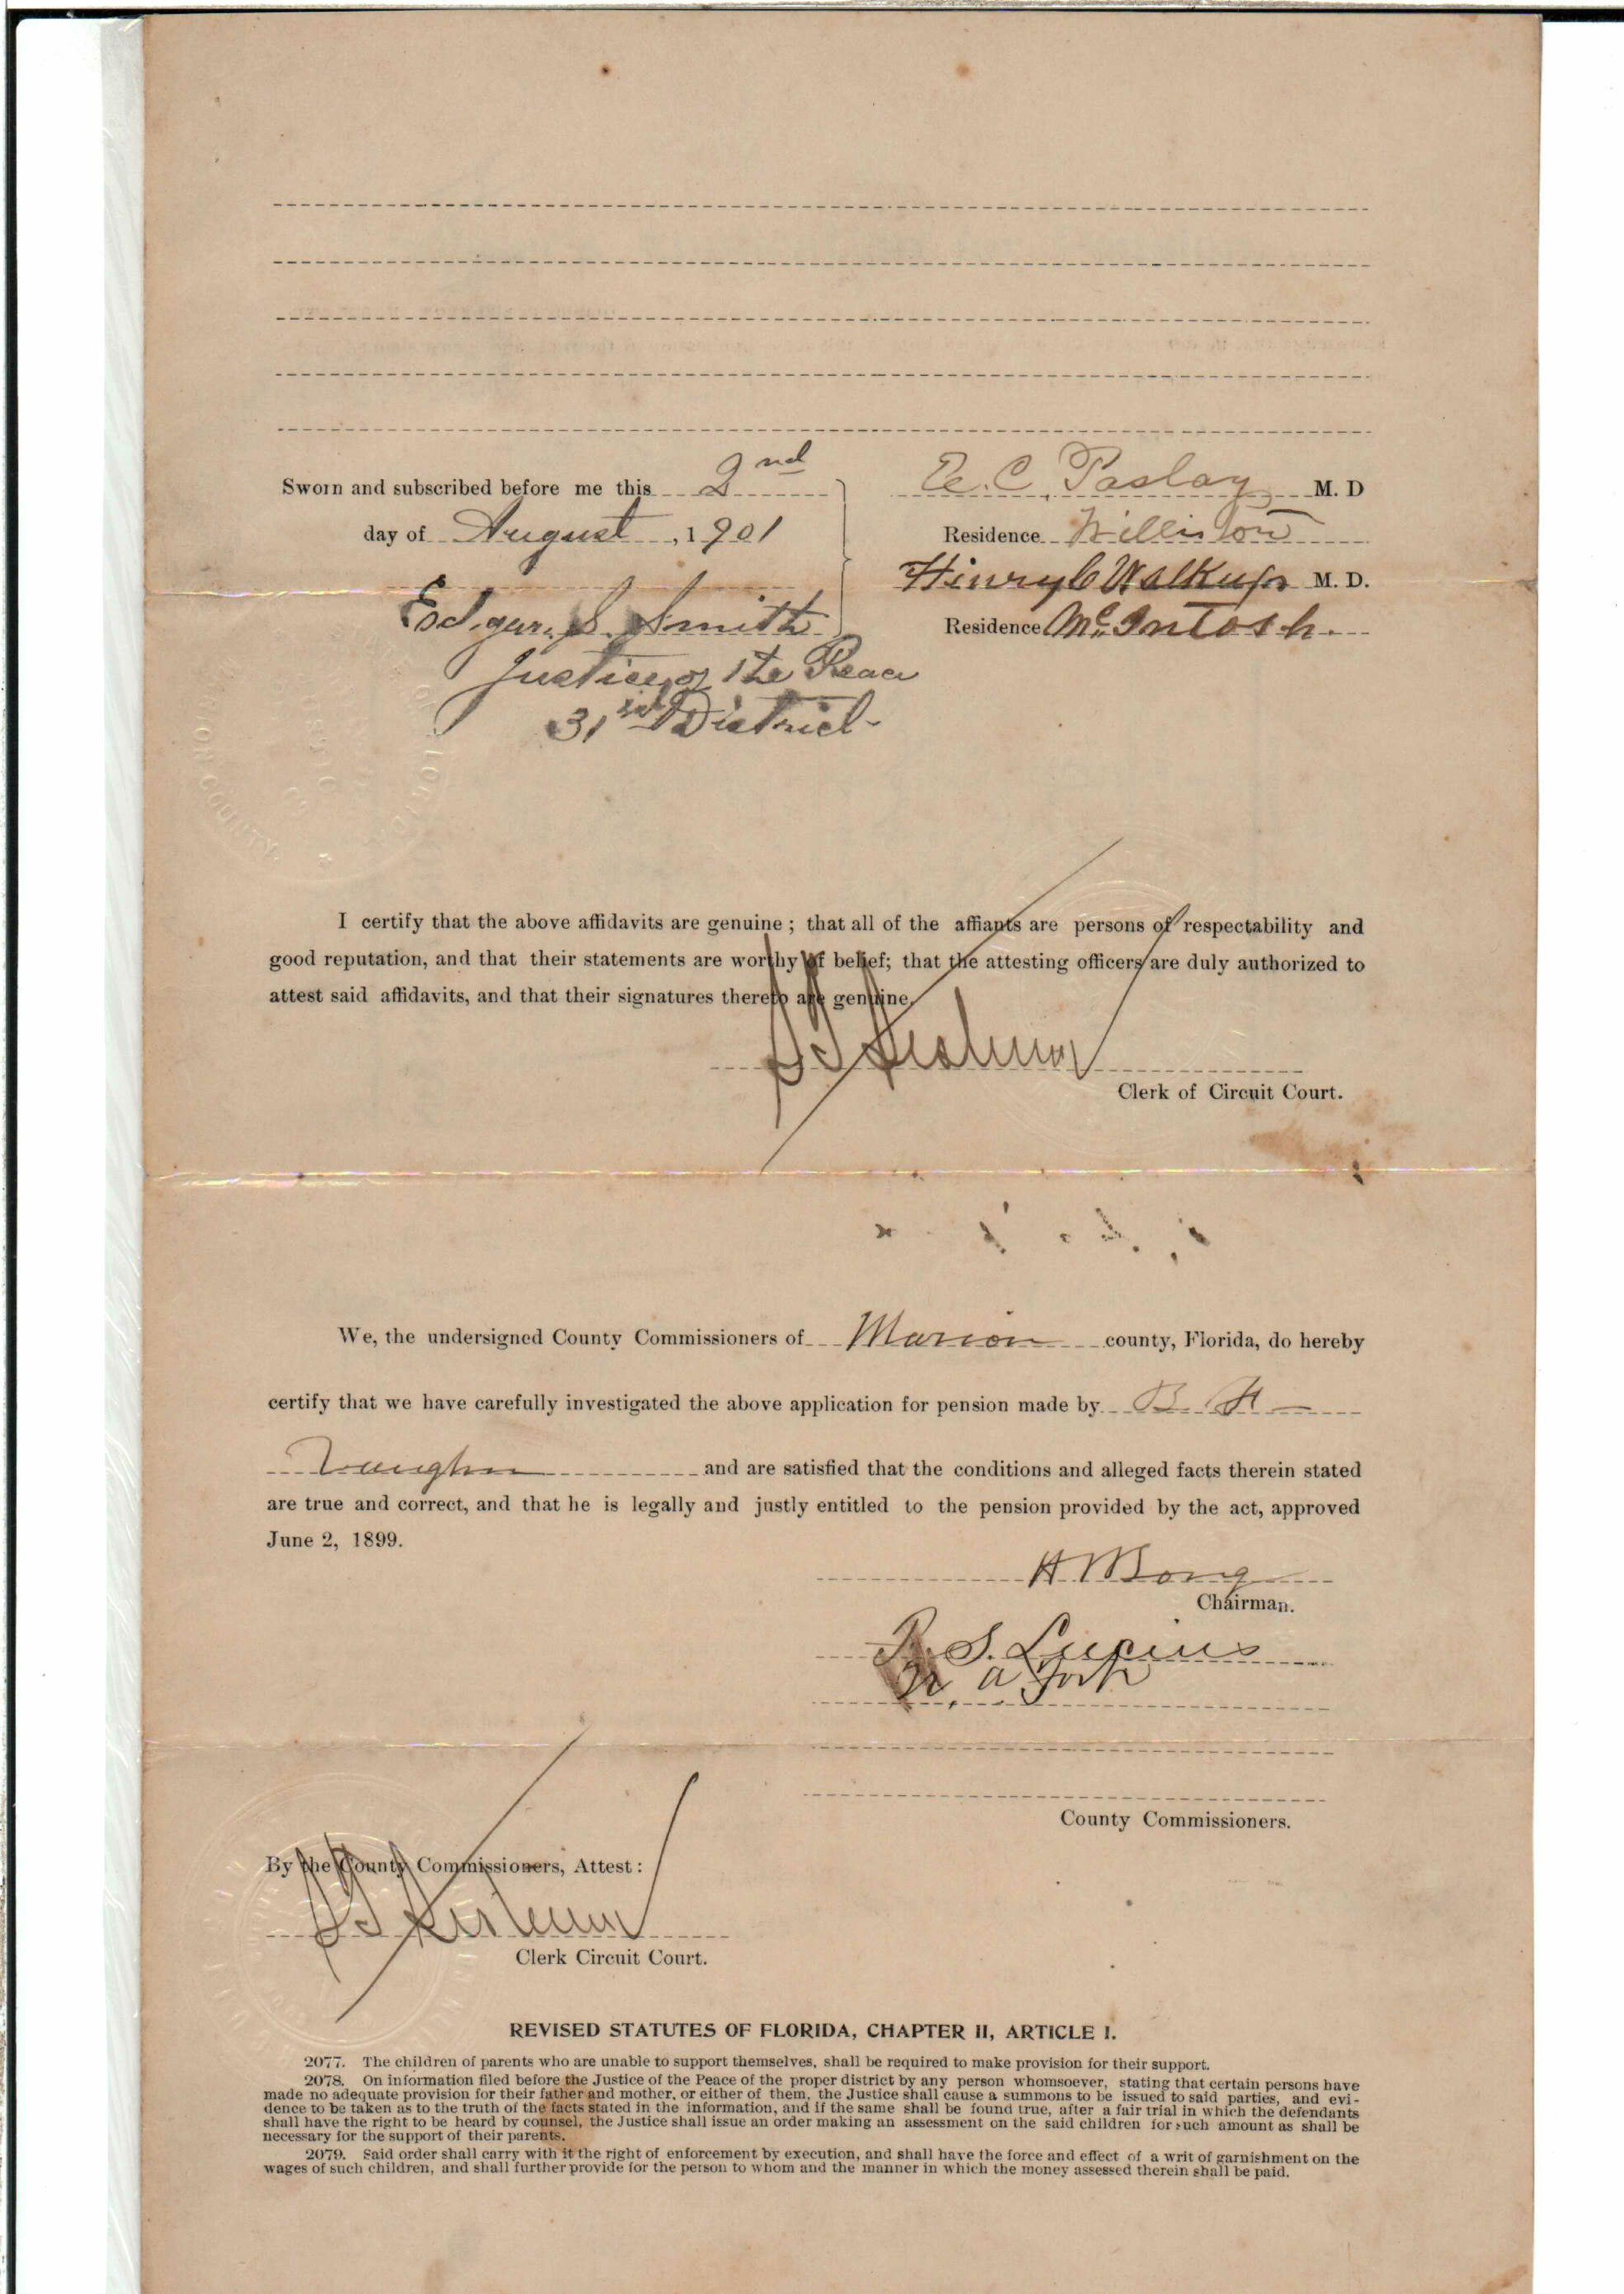 Sworn and subscribed before me this 2nd
day of August, 1901
Edgar. S. Smith
Justice of the Peace
31st District
C. Paslay M. D
Residence Williston
Hinry C Walkup M. D.
Residence McIntosh.
ON COUNTY.
I certify that the above affidavits are genuine; that all of the affiants are persons of respectability and
good reputation, and that their statements are worthy of belief; that the attesting officers are duly authorized to
attest said affidavits, and that their signatures thereto are genuine.
Clerk of Circuit Court.
We, the undersigned County Commissioners of Marion county, Florida, do hereby
certify that we have carefully investigated the above application for pension made by B. H
Vaughn and are satisfied that the conditions and alleged facts therein stated
are true and correct, and that he is legally and justly entitled to the pension provided by the act, approved
June 2, 1899.
H. W Long
Chairman.
S. Lucius
County Commissioners.
By the County Commissioners, Attest:
Clerk Circuit Court.
REVISED STATUTES OF FLORIDA, CHAPTER II, ARTICLE I.
2077. The children of parents who are unable to support themselves, shall be required to make provision for their support.
2078. On information filed before the Justice of the Peace of the proper district by any person whomsoever, stating that certain persons have
made no adequate provision for their father and mother, or either of them, the Justice shall cause a summons to be issued to said parties, and evi-
dence to be taken as to the truth of the facts stated in the information, and if the same shall be found true, after a fair trial in which the defendants
shall have the right to be heard by counsel, the Justice shall issue an order making an assessment on the said children for such amount as shall be
necessary for the support of their parents.
2079. Said order shall carry with it the right of enforcement by execution, and shall have the force and effect of a writ of garnishment on the
wages of such children, and shall further provide for the person to whom and the manner in which the money assessed therein shall be paid.